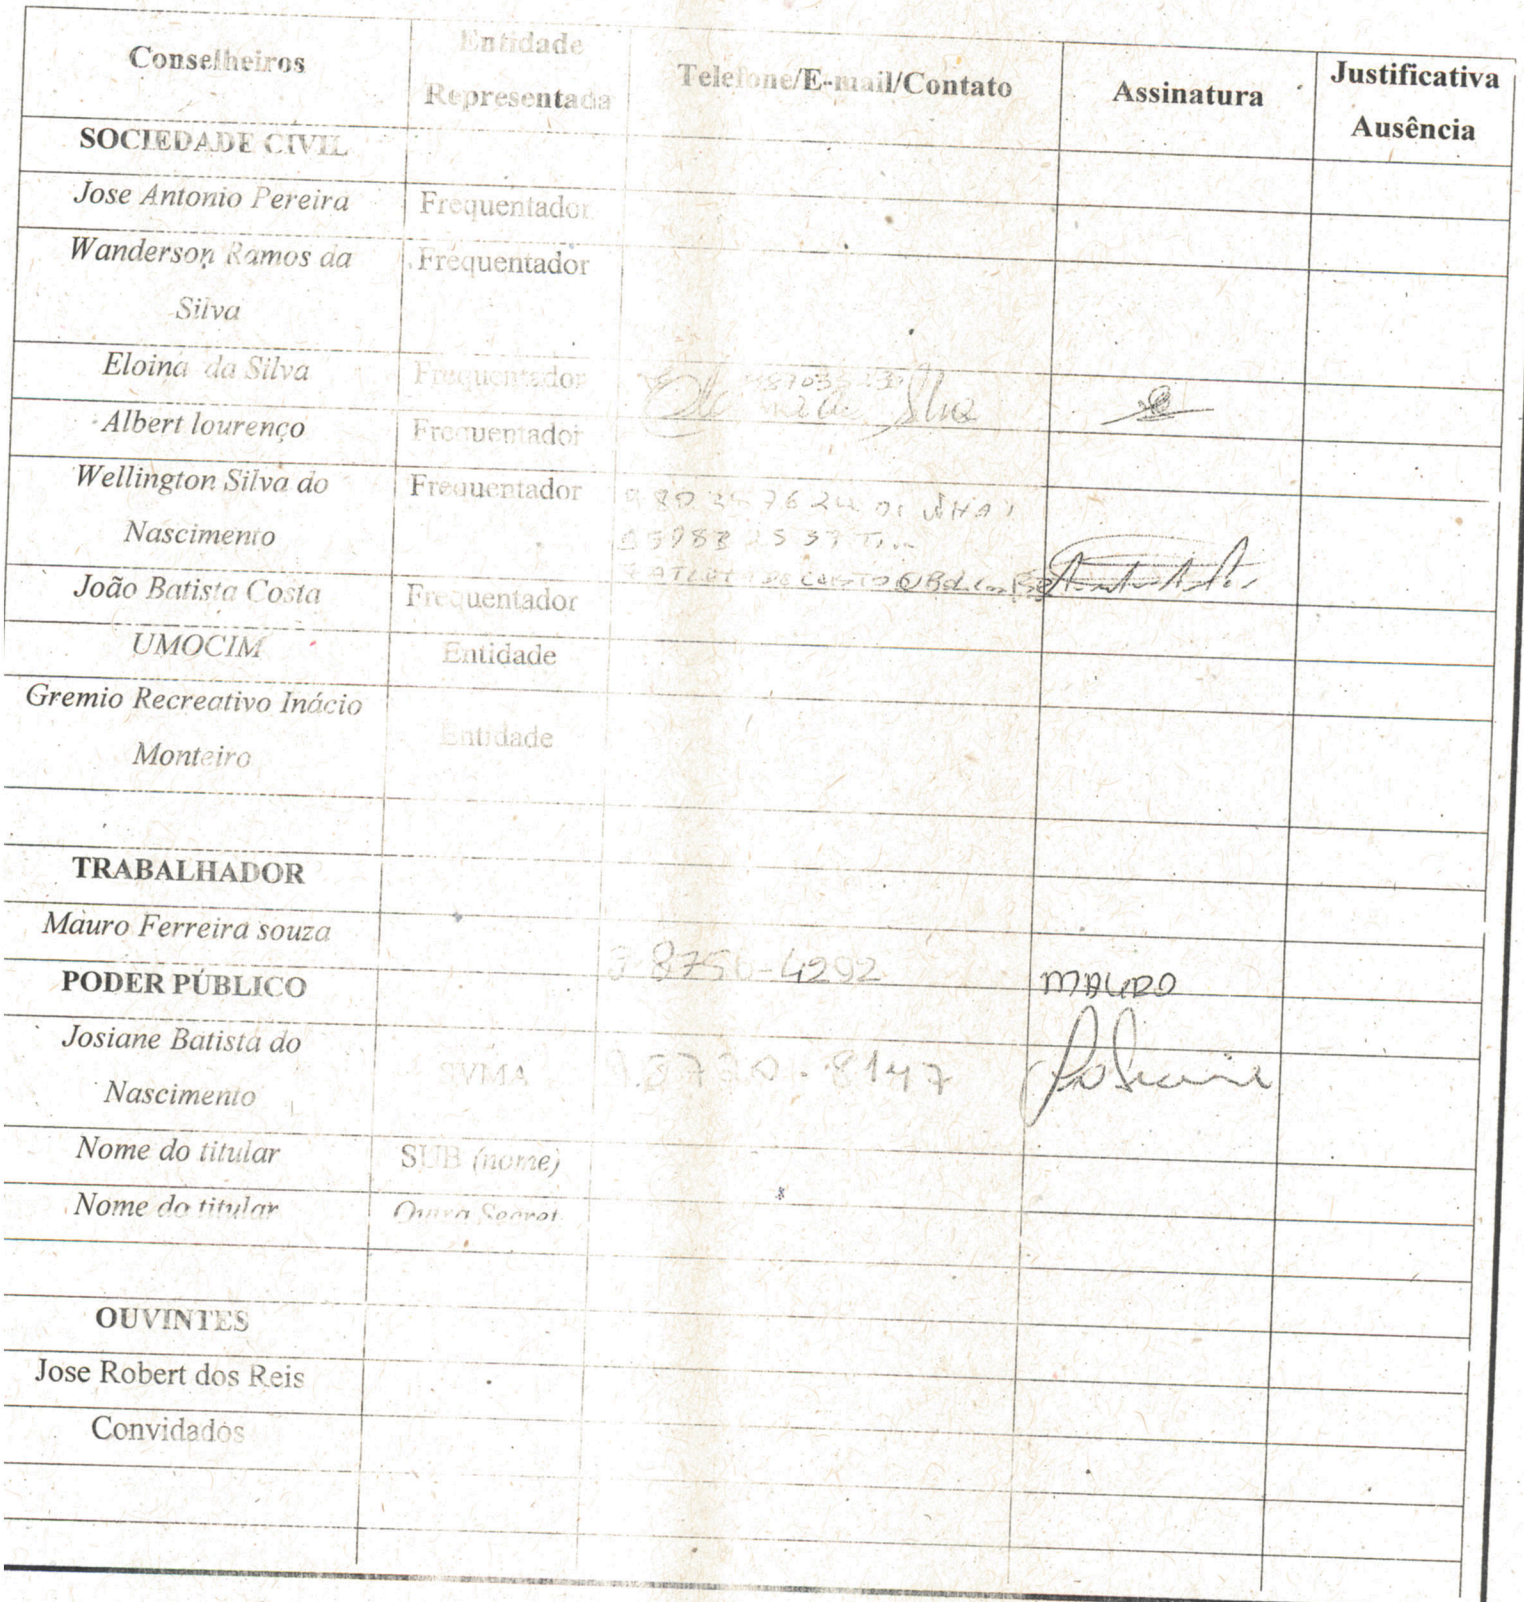 Conselheiros Entidade Representada Telefone/E-mail/Contato Assinatura Justificativa Ausência
SOCIEDADE CIVIL
Jose Antonio Pereira Frequentador
Wanderson Ramos da Frequentador
Silva
Eloina da Silva Frequentador
Silva
Albert lourenço Frequentador
Wellington Silva do Frequentador
Nascimento
João Batista Costa Frequentador
UMOCIM Entidade
Gremio Recreativo Inácio
Monteiro Entidade
TRABALHADOR
Mauro Ferreira souza
8750-4292 MAURO
PODER PÚBLICO
Josiane Batista do
Nascimento SVMA 8147 Josiane
Nome do titular SUB (nome)
Nome do titular Outra Secret.
OUVINTES
Jose Robert dos Reis
Convidados